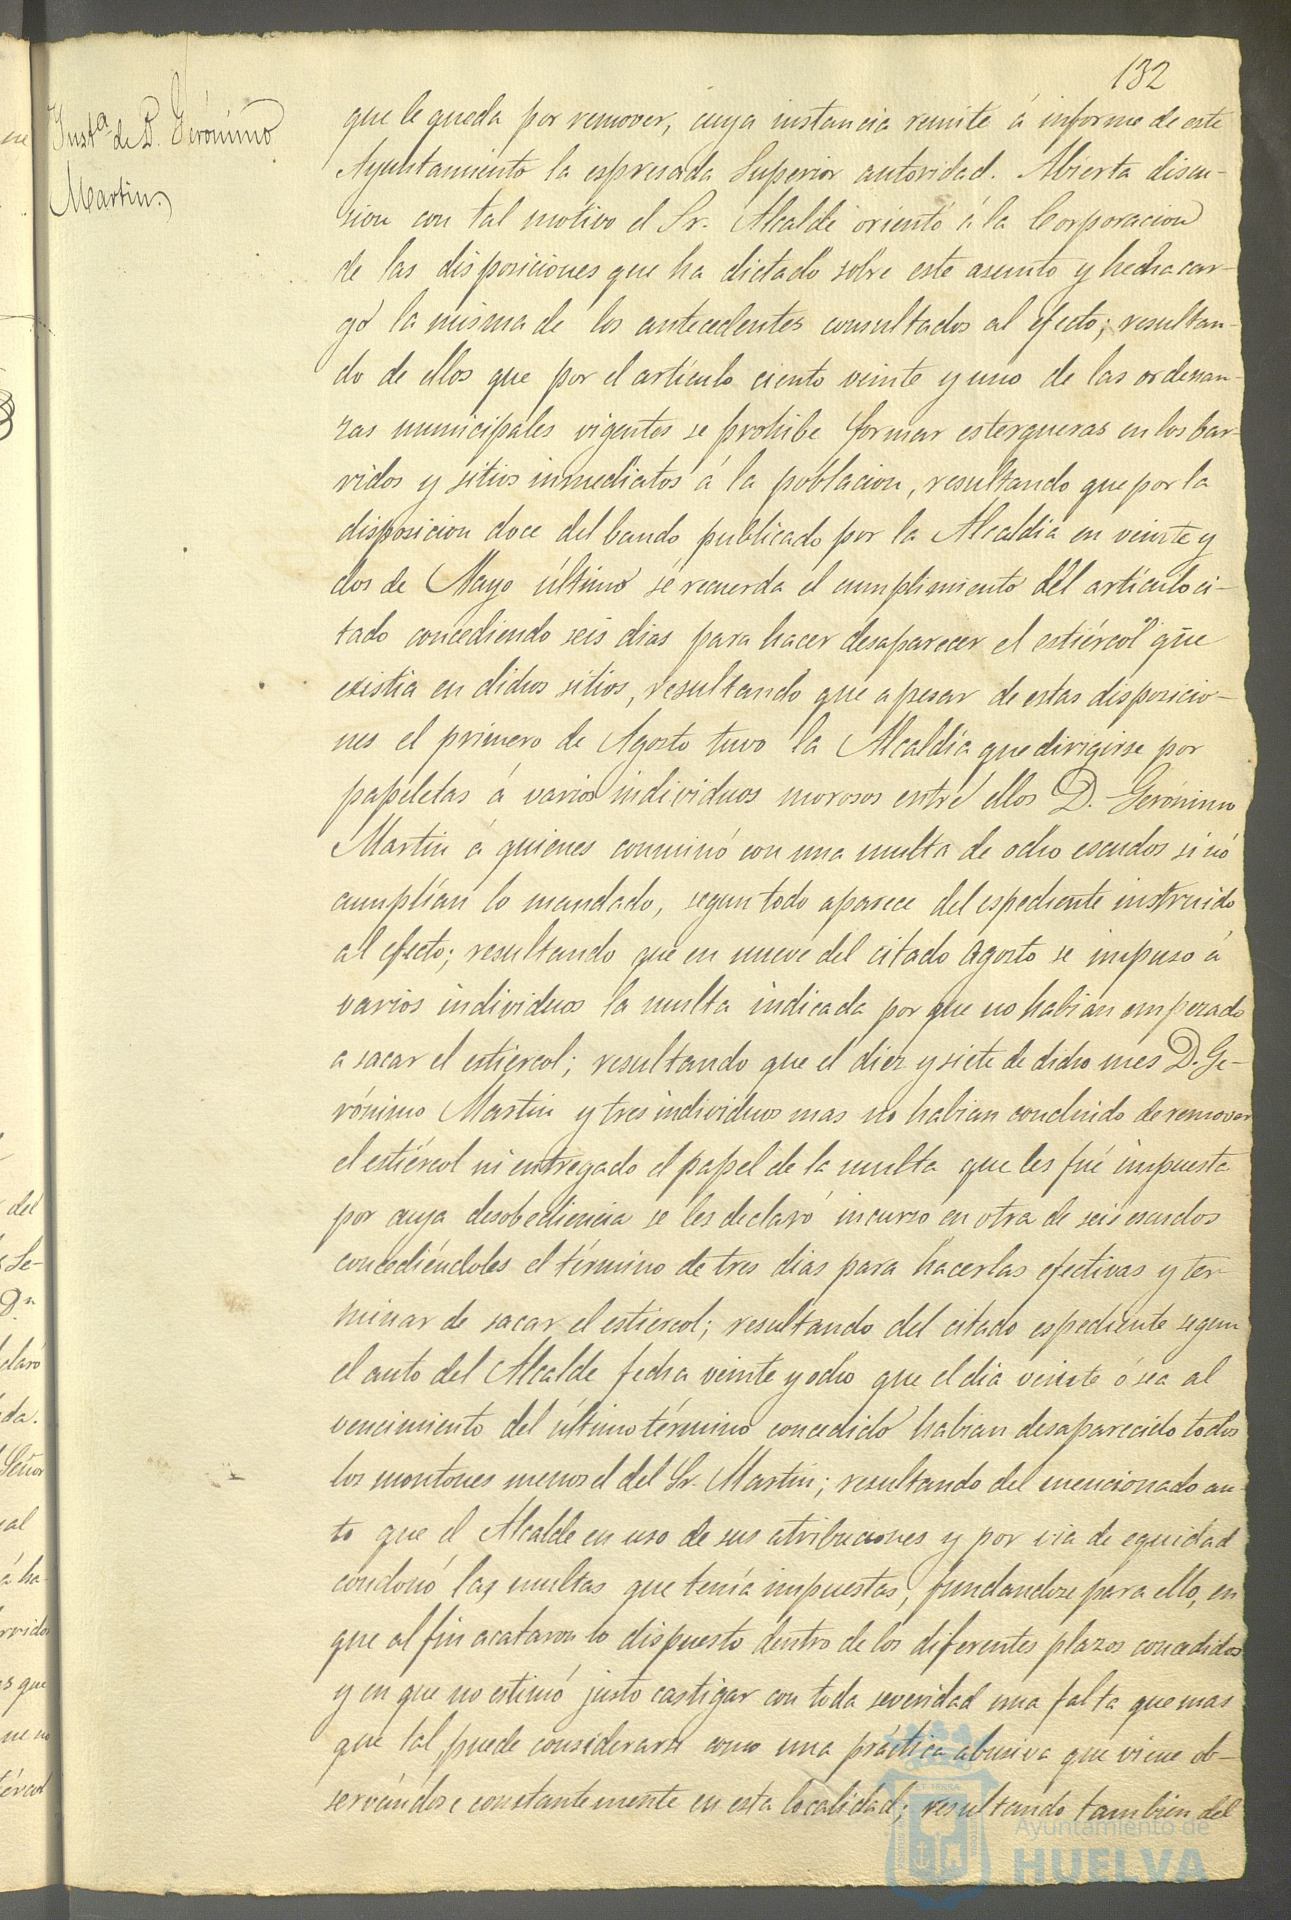 132
Inst.ª de D. Gerónimo
Martin.
que le queda por remover, cuya instancia remite á informe de este
Ayuntamiento la espresada Superior autoridad. Abierta discu-
sion con tal motivo el Sr. Alcalde orientó á la Corporacion
de las disposiciones que ha dictado sobre este asunto y hecha car-
go la misma de los antecedentes consultados al efecto; resultan-
do de ellos que por el artículo ciento veinte y uno de las ordenan-
zas municipales vigentes se prohibe formar estergueras en los bar-
ridos y sitios inmediatos á la poblacion, resultando que por la
disposicion doce del bando publicado por la Alcaldia en veinte y
dos de Mayo último se recuerda el cumplimiento del artículo ci-
tado concediendo seis dias para hacer desaparecer el estiércol que
existia en dichos sitios, resultando que apesar de estas disposicio-
nes el primero de Agosto tuvo la Alcaldía que dirigirse por
papeletas á varios individuos morosos entre ellos D. Gerónimo
Martin á quienes conminó con una multa de ocho escudos si nó
cumplían lo mandado, segun todo aparece del espediente instruido
al efecto; resultando que en nueve del citado Agosto se impuso á
varios individuos la multa indicada por que no habian empezado
a sacar el estiércol; resultando que el diez y siete de dicho mes D. Ge-
rónimo Martin y tres individuos mas no habian concluido de remover
el estiércol ni entregado el papel de la multa que les fué impuesta
por cuya desobediencia se les declaró incurso en otra de seis escudos
concediéndoles el término de tres dias para hacerlas efectivas y ter-
minar de sacar el estiercol; resultando del citado espediente segun
el auto del Alcalde fecha veinte y ocho que el dia veinte ó sea al
vencimiento del último término concedido habian desaparecido todos
los montones menos el del Sr. Martin; resultando del mencionado au-
to que el Alcalde en uso de sus atribuciones y por via de equidad
condonó las multas que tenía impuestas, fundandose para ello, en
que al fin acataron lo dispuesto dentro de los diferentes plazos concedidos
y en que no estimó justo castigar con toda severidad una falta que mas
que tal puede considerarse como una práctica abusiva que viene ob-
servándose constantemente en esta localidad; resultando tambien del
Ayuntamiento de
HUELVA